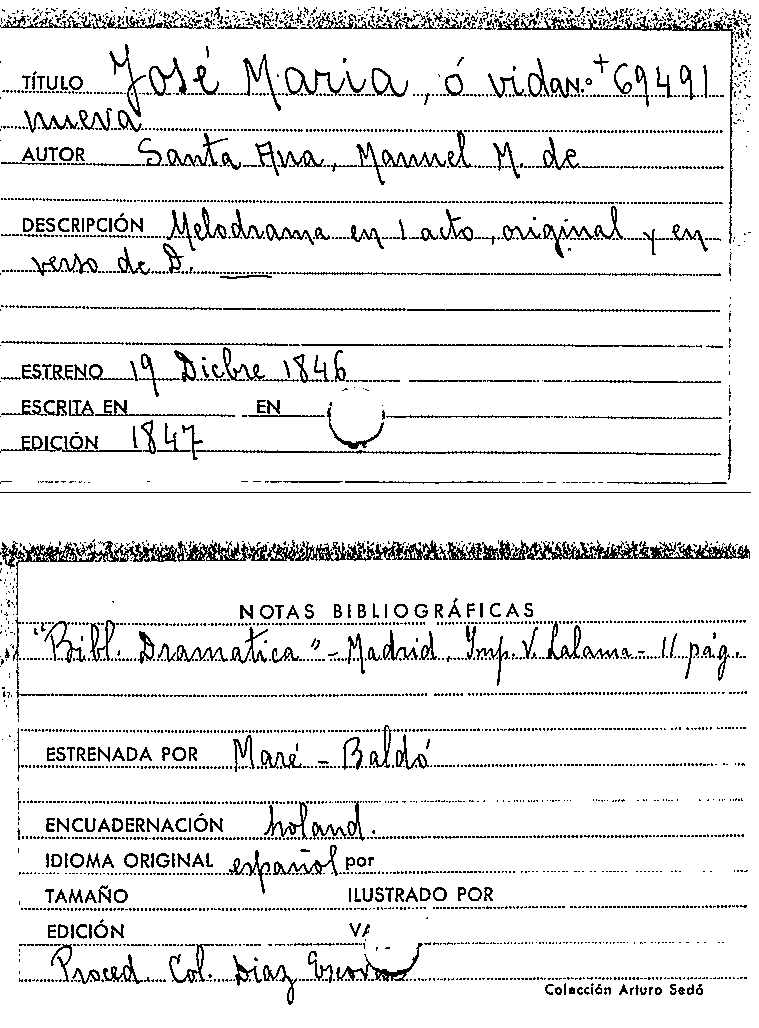 TÍTULO José Maria, ó vida N.º + 69491
nueva
AUTOR Santa Ana, Manuel M. de
DESCRIPCIÓN Melodrama en 1 acto, original y en
verso de D. ___
ESTRENO 19 Dicbre 1846
ESCRITA EN EN
EDICIÓN 1847
NOTAS BIBLIOGRÁFICAS
"Bibl. Dramatica" - Madrid, Imp. V. Lalama - 11 pág.
ESTRENADA POR Maré - Baldó
ENCUADERNACIÓN holand.
IDIOMA ORIGINAL español por
TAMAÑO ILUSTRADO POR
EDICIÓN
Proced. Col. Diaz
Colección Arturo Sedó